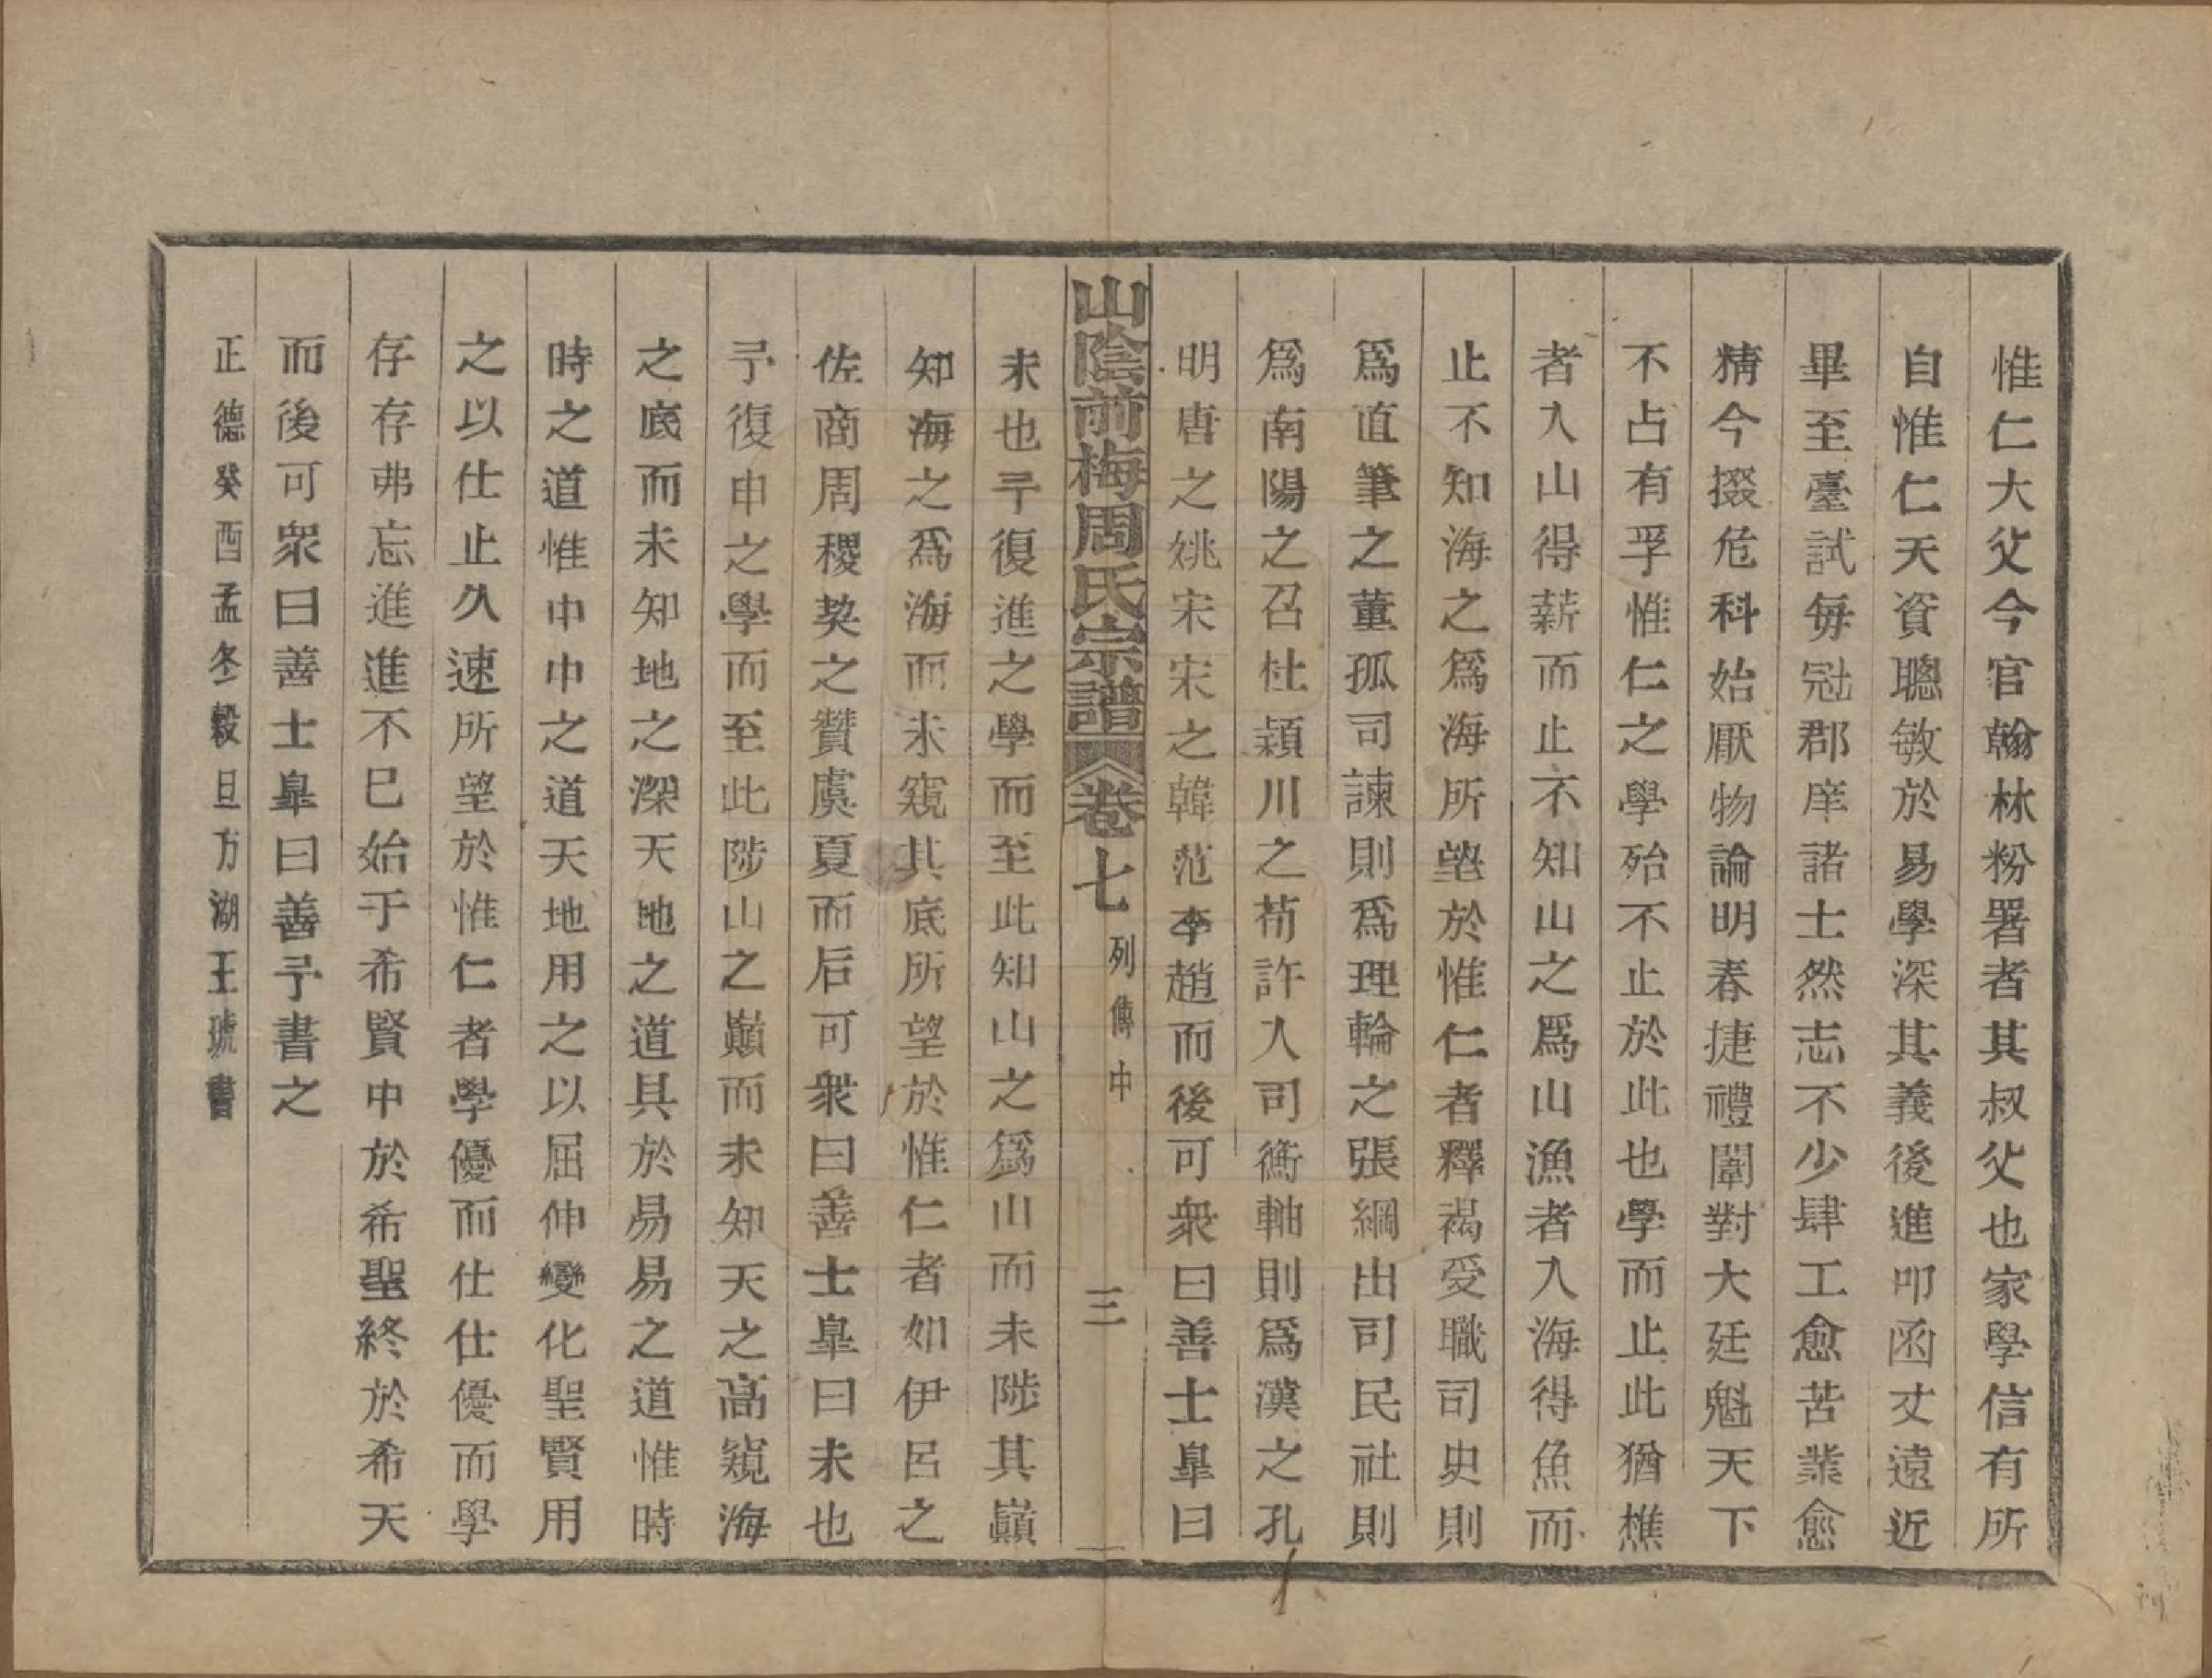 惟仁大父今官翰林粉署者其叔父也家學信有所
自惟仁天資聰敏於易學深其義後進叩函丈遠近
畢至臺試每冠郡庠諸士然志不少肆工愈苦業愈
精今掇危科始厭物論明春捷禮闈對大廷魁天下
不占有孚惟仁之學殆不止於此也學而止此猶樵
者入山得薪而止不知山之爲山漁者入海得魚而
止不知海之爲海所望於惟仁者釋褐受職司史則
爲直筆之董孤司諫則爲理輪之張綱出司民社則
爲南陽之召杜潁川之荀許入司衡軸則爲漢之孔
明唐之姚宋宋之韓范李趙而後可衆曰善士臯曰
山陰前梅周氏宗譜 卷七 列傳中 三
未也予復進之學而至此知山之爲山而未陟其巔
知海之爲海而未窺其底所望於惟仁者如伊呂之
佐商周稷契之贊虞夏而后可衆曰善士臯曰未也
予復申之學而至此陟山之巔而未知天之高窺海
之底而未知地之深天地之道具於易易之道惟時
時之道惟中中之道天地用之以屈伸變化聖賢用
之以仕止久速所望於惟仁者學優而仕仕優而學
存存弗忘進進不巳始于希賢中於希聖終於希天
而後可衆曰善士臯曰善予書之
正德癸酉孟冬穀旦方湖王琥書